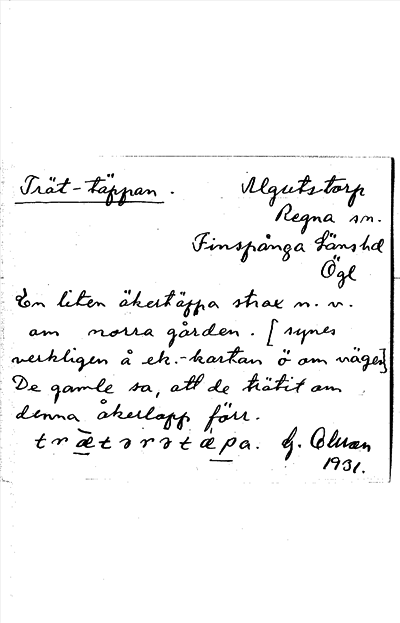 Trät-täppan. Algutstorp
Regna sn.
Finspånga Länshd
Ögl
En liten åkertäppa strax n. v.
om norra gården. [synes
verkligen å ek.-kartan ö om vägen]
De gamle sa, att de trätit om
denna åkerlapp förr.
trǽtərətǽpa. G. Olsson
1931.